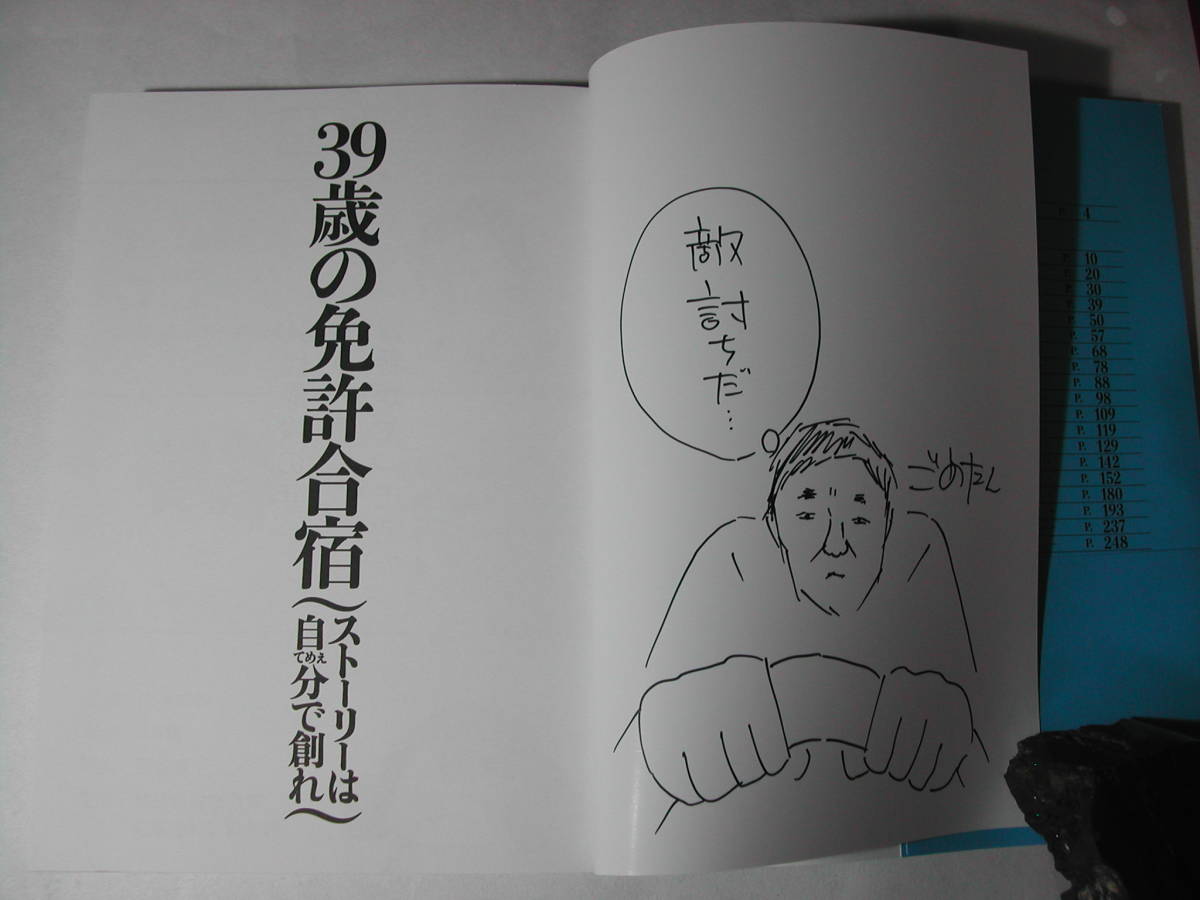 39歳の免許合宿
〜ストーリーは
自分で創れ〜
てめえ
敵
討ちだ…
ごめたん
P. 4
P. 10
P. 20
P. 30
P. 39
P. 50
P. 57
P. 68
P. 78
P. 88
P. 98
P. 109
P. 119
P. 129
P. 142
P. 152
P. 180
P. 193
P. 237
P. 248